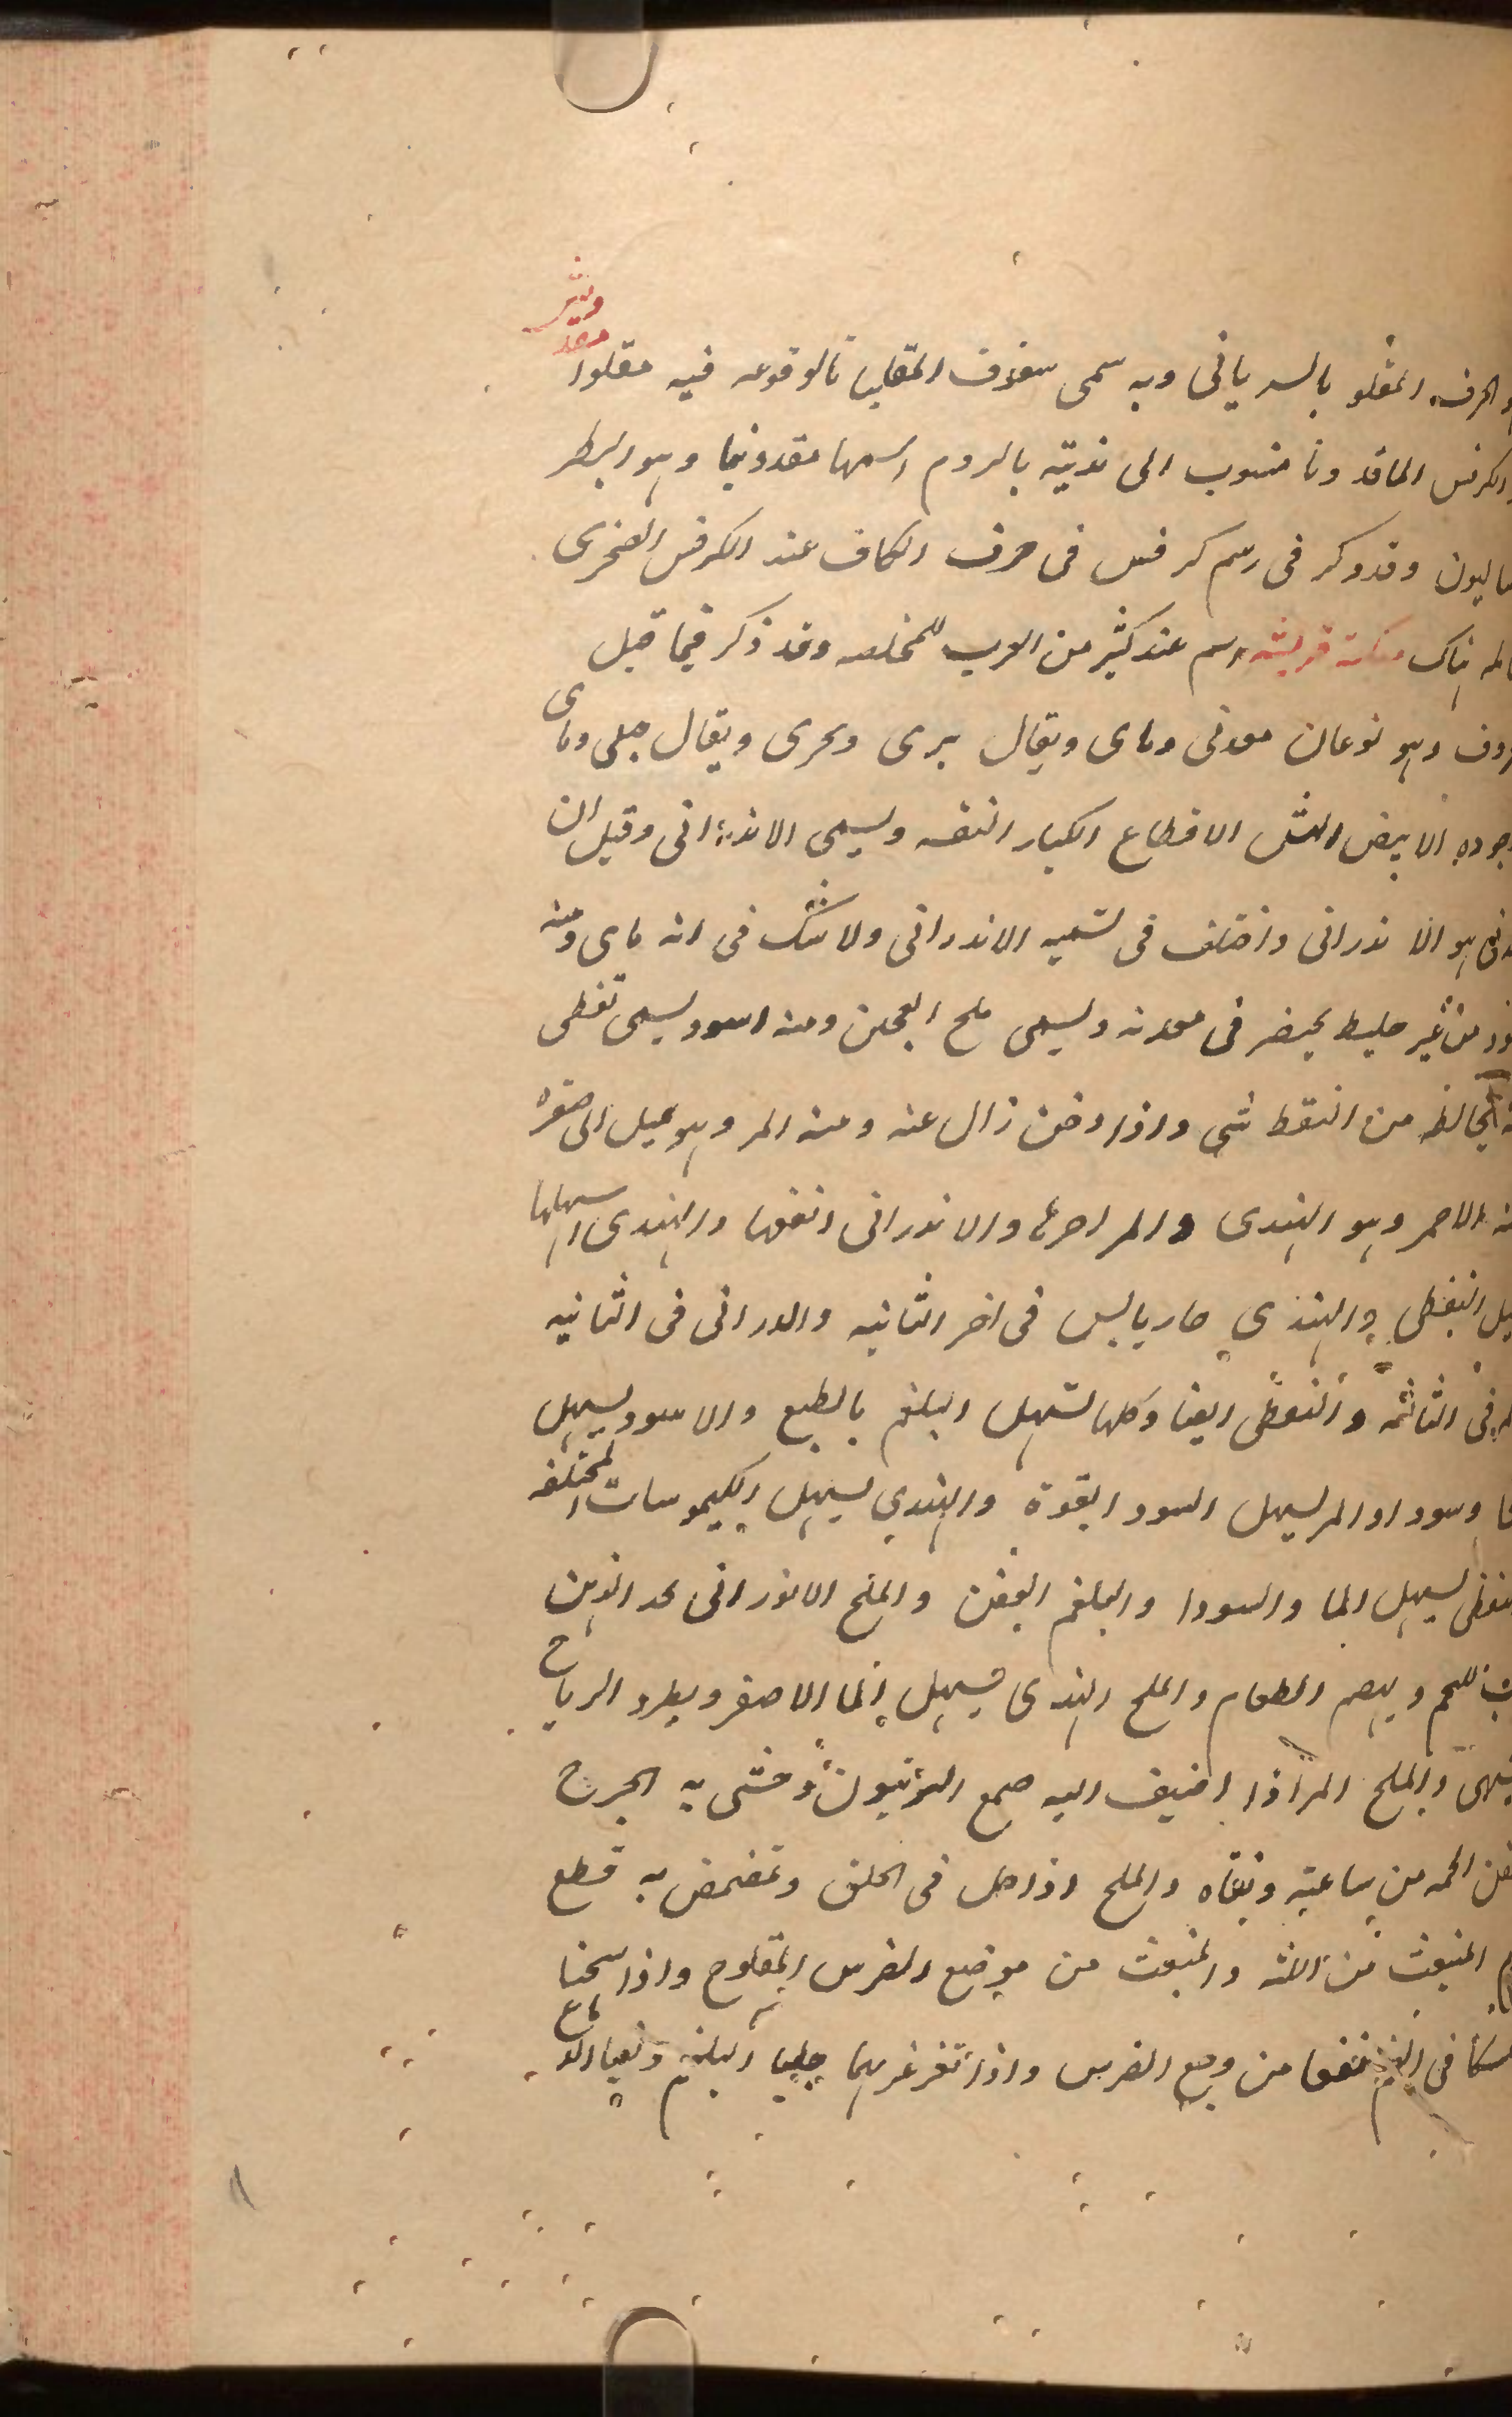 الحرف المقلو بالسريانى وبه سمى سفوف المقلياثا لوقوعه فيه مقلوا
الكرفس الماقدونا منسوب الى مدينة بالروم اسمها مقدونيا وهو البطر
ساليون وقد ذكر فى رسم كرفس فى حرف الكاف عند الكرفس الصخرى
هناك مسكنة قريشه اسم عند كثير من العرب للمخلصه وقد ذكر فيما قبل
وهو نوعان معدنى وماى ويقال برى وبحرى ويقال جبلى وماى
الابيض الهش الاقطاع الكبار النقه ويسمى الاندرانى وقيل ان
هو الاندرانى واختلف فى تسميه الاندرانى ولا شك فى انه ماى ومنه
من غير خليط يحضر فى معدنه ويسمى ملح العجين ومنه اسود يسمى نفطى
يخالطه من النفط شى واذا دخن زال عنه ومنه المر وهو يميل الى صفره
الاحمر وهو الهندى والمر احرها والاندرانى انفعها والهندى اسهلها
النفطى والهندى حار يابس فى اخر الثانيه والدرانى فى الثانيه
فى الثالثه والنفطى ايضا وكلها تسهل البلغم بالطبع والاسود يسهل
وسودا والمر يسهل السودا بقوة والهندى يسهل الكيموسات المختلفه
يسهل الما والسودا والبلغم العفن والملح الاندرانى يحد الذهن
ويهضم الطعام والملح الهندى يسهل الما الاصفر ويطرد الرياح
والملح المر اذا اضيف اليه صمغ الزيتون وحشى به الجرح
الحمه من ساعته ونقاه والملح اذا حل فى الخل وتمضمض به قطع
المنبعث من اللثه والمنبعث من موضع الضرس المقلوع واذا سخنا
فى الفم نفعا من وجع الضرس واذا تغرغر بهما جلبا البلغم ونقيا الدماغ